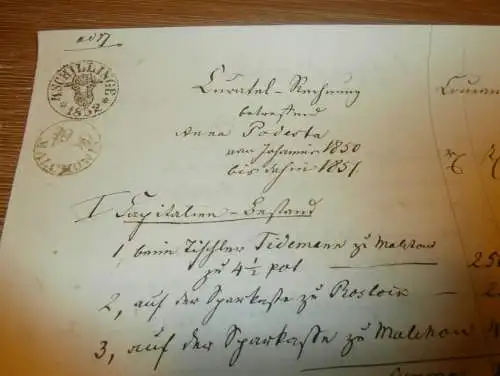 ad 27.
4 SCHILLINGE
* 1852 *
Curatel-Rechnung
Couran
betreffend
Anna Podesta
von Johannis 1850
bis dahin 1851
I Capitalien-Bestand
1, beim Tischler Tidemann zu Malchow
zu 4½ pct
250
2, auf der Sparkasse zu Rostock
2
3, auf der Sparkasse zu Malchow